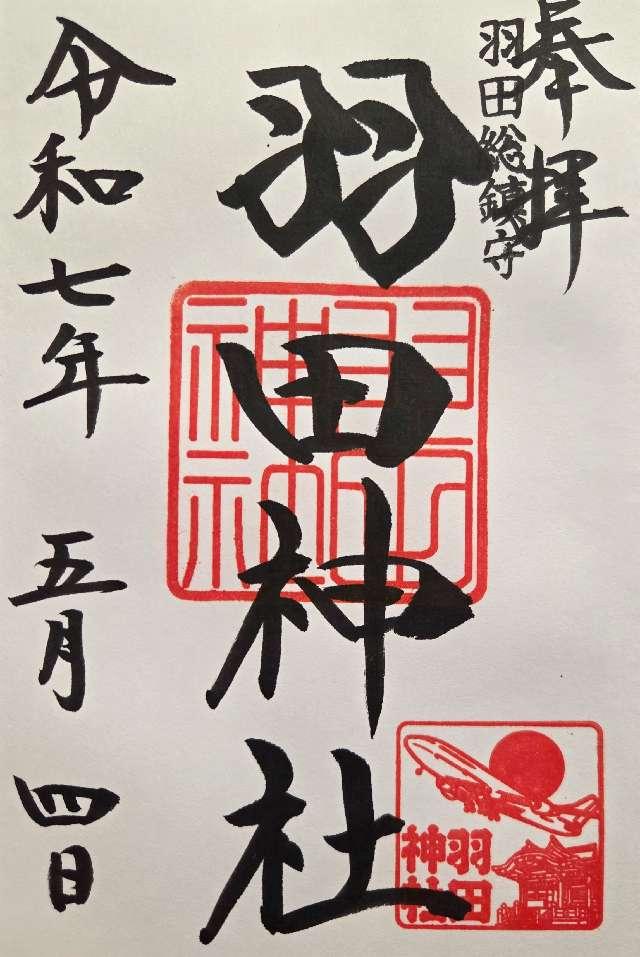 奉拝
羽田総鎮守
羽田神社
羽田神社
羽田神社
令和七年 五月 四日